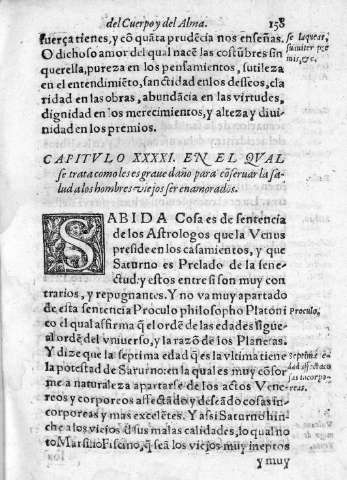 del Cuerpo y del Alma. 158
fuerça tienes, y cõ quãta prudẽcia nos enseñas.
O dichoso amor del qual nacẽ las costũbres sin
querella, pureza en los pensamientos, sutileza
en el entendimiẽto, sanctidad en los desseos, cla
ridad en las obras, abundãcia en las virtudes,
dignidad en los merecimientos, y alteza y diui
nidad en los premios.
se laquear,
sumiter pre
mis, &c.
CAPITVLO XXXXI. EN EL QVAL
se trata como les es graue daño para cõseruar la sa-
lud a los hombres viejos ser enamorados.
SABIDA Cosa es de sentencia
de los Astrologos que la Venus
preside en los casamientos, y que
Saturno es Prelado de la sene-
ctud. y estos entre si son muy con
trarios, y repugnantes. Y no va muy apartado
de esta sentencia Proculo philosopho Platoni
co el qual affirma q̃ el ordẽ de las edades sigue
al ordẽ del vniuerso, y la razõ de los Planetas.
Y dize que la septima edad q̃ es la vltima tiene
la potestad de Saturno: en la qual es muy cõfor
me a naturaleza apartarse de los actos Vene-
reos y corporeos affectãdo y deseãdo cosas in-
corporeas y mas excelẽtes. Y assi Saturno hin-
che a los viejos d̃ sus malas calidades, lo qual no
to Marsilio Ficino, q̃ sea los viejos muy ineptos
y muy
Proculo.
Septime æ-
dad affectaco
sas incorpo-
reas.